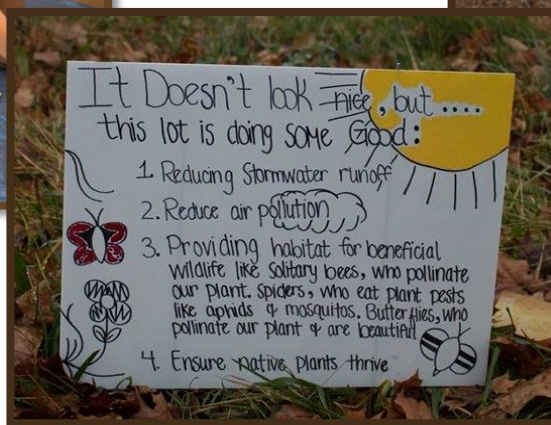 It Doesn't look nice, but.....
this lot is doing some Good:
1. Reducing Stormwater runoff
2. Reduce air pollution
3. Providing habitat for beneficial
wildlife like Solitary bees, who pollinate
our plant. Spiders, who eat plant pests
like aphids & mosquitos. Butterflies, who
pollinate our plant & are beautiful
4. Ensure native plants thrive